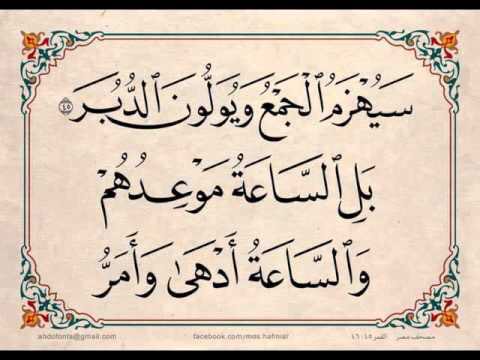 سَيُهْزَمُ ٱلْجَمْعُ وَيُوَلُّونَ ٱلدُّبُرَ ٤٥
بَلِ ٱلسَّاعَةُ مَوْعِدُهُمْ
وَٱلسَّاعَةُ أَدْهَىٰ وَأَمَرُّ
مصحف مصر القمر ٤٥-٤٦
facebook.com/mos.hafmisr
abdofonts@gmail.com